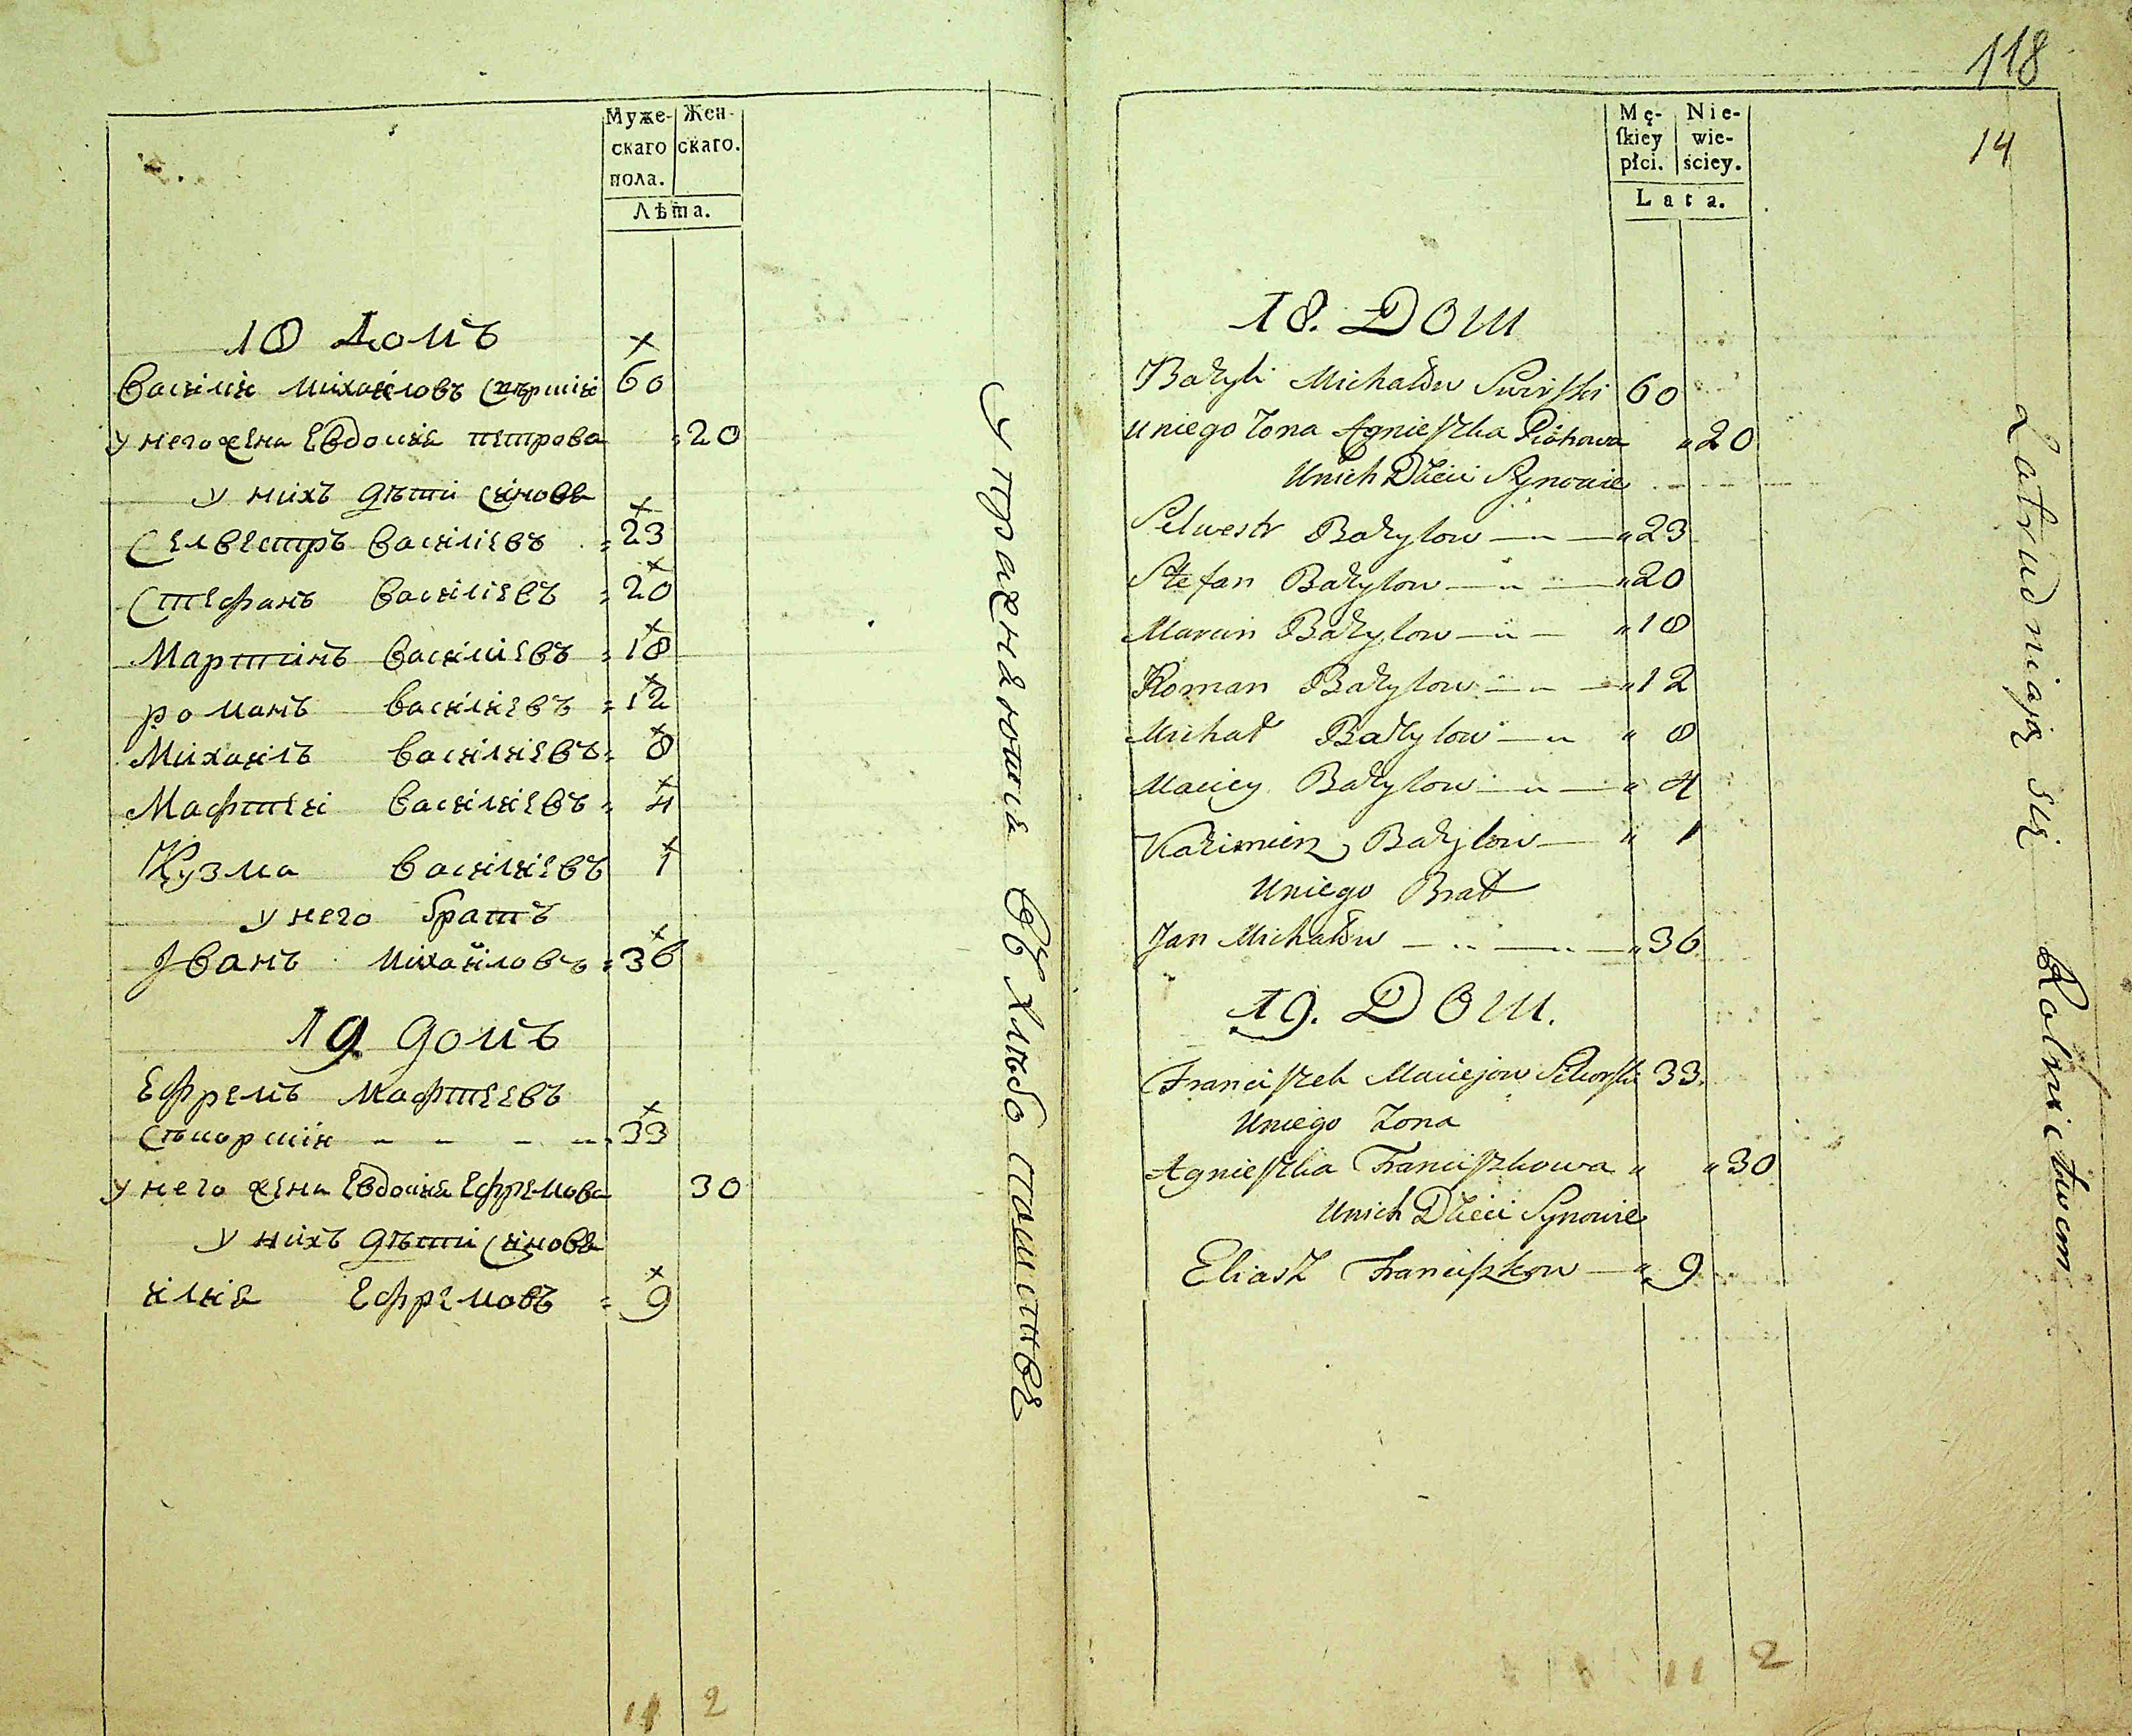 Муже-
скаго
пола.
Жен-
скаго.
Лѣта.
18 домъ
василий михайловъ 60
у него жена Евдокия петрова 20
у нихъ дѣти синове
Селвестръ василиевъ 23
Стефанъ василиевъ 20
Мартинъ василиевъ 18
романъ василиевъ 12
Михаилъ василиевъ 8
Мафтей василиевъ 4
Кузма василиевъ 1
у него братъ
Иванъ михайловъ 36
19 домъ
Ефремъ мафтеевъ
33
у него жена Евдокия Ефремова 30
у нихъ дѣти синове
илия Ефремовъ 9
11 2
упражняютца въ хлѣбопашистве
118
14
Mę-
ſkiey
płci.
Nie-
wie-
ściey.
Lata.
18. Dom
Bazyli Michałow 60
u niego Zona Agnieszka 20
U nich Dzieci Synowie
Selwestr Bazylow 23
Stefan Bazylow 20
Marcin Bazylow 18
Roman Bazylow 12
Michał Bazylow 8
Maciey Bazylow 4
Kazimierz Bazylow 1
U niego Brat
Jan Michałow 36
19. Dom.
Franciszek Maciejow 33
U niego Zona
Agnieszka Franciszkowa 30
U nich Dzieci Synowie
Eliasz Franciszkow 9
11 2
Zatrudniają się Rolnictwem